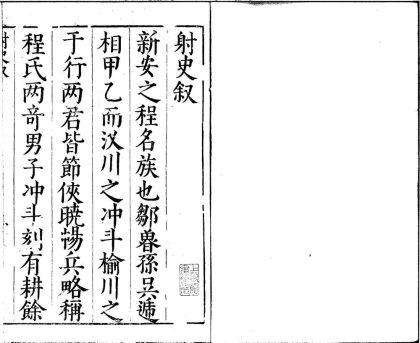 射史叙
新安之程名族也鄒魯孫吳遞
相甲乙而汊川之冲斗榆川之
于行两君皆節俠曉暢兵略稱
程氏两竒男子冲斗刻有耕餘
射史叙